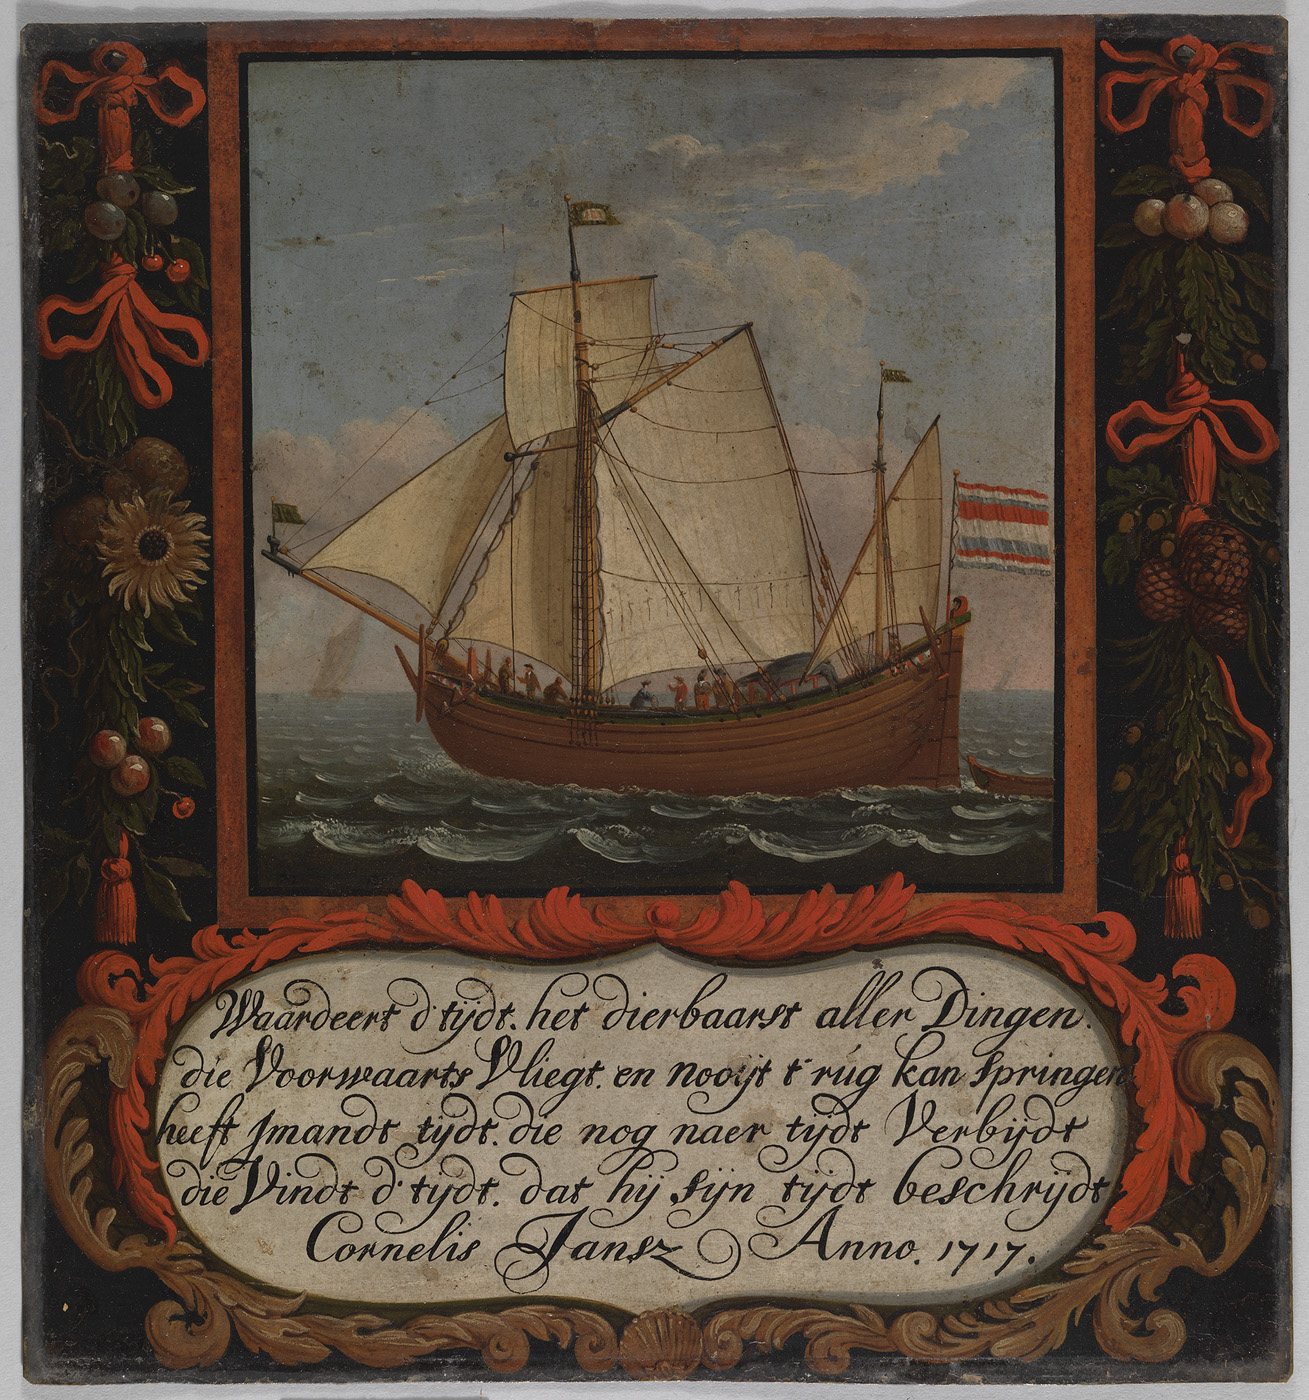 Waardeert d' tijdt. het dierbaarst aller Dingen.
die Voorwaarts Vliegt. en nooijt t' rúg kan springen
heeft Jmandt tijdt. die nog naer tijdt Verbijdt
die Vindt d' tijdt. dat hij sijn tijdt beschrijdt
Cornelis Jansz Anno. 1717.